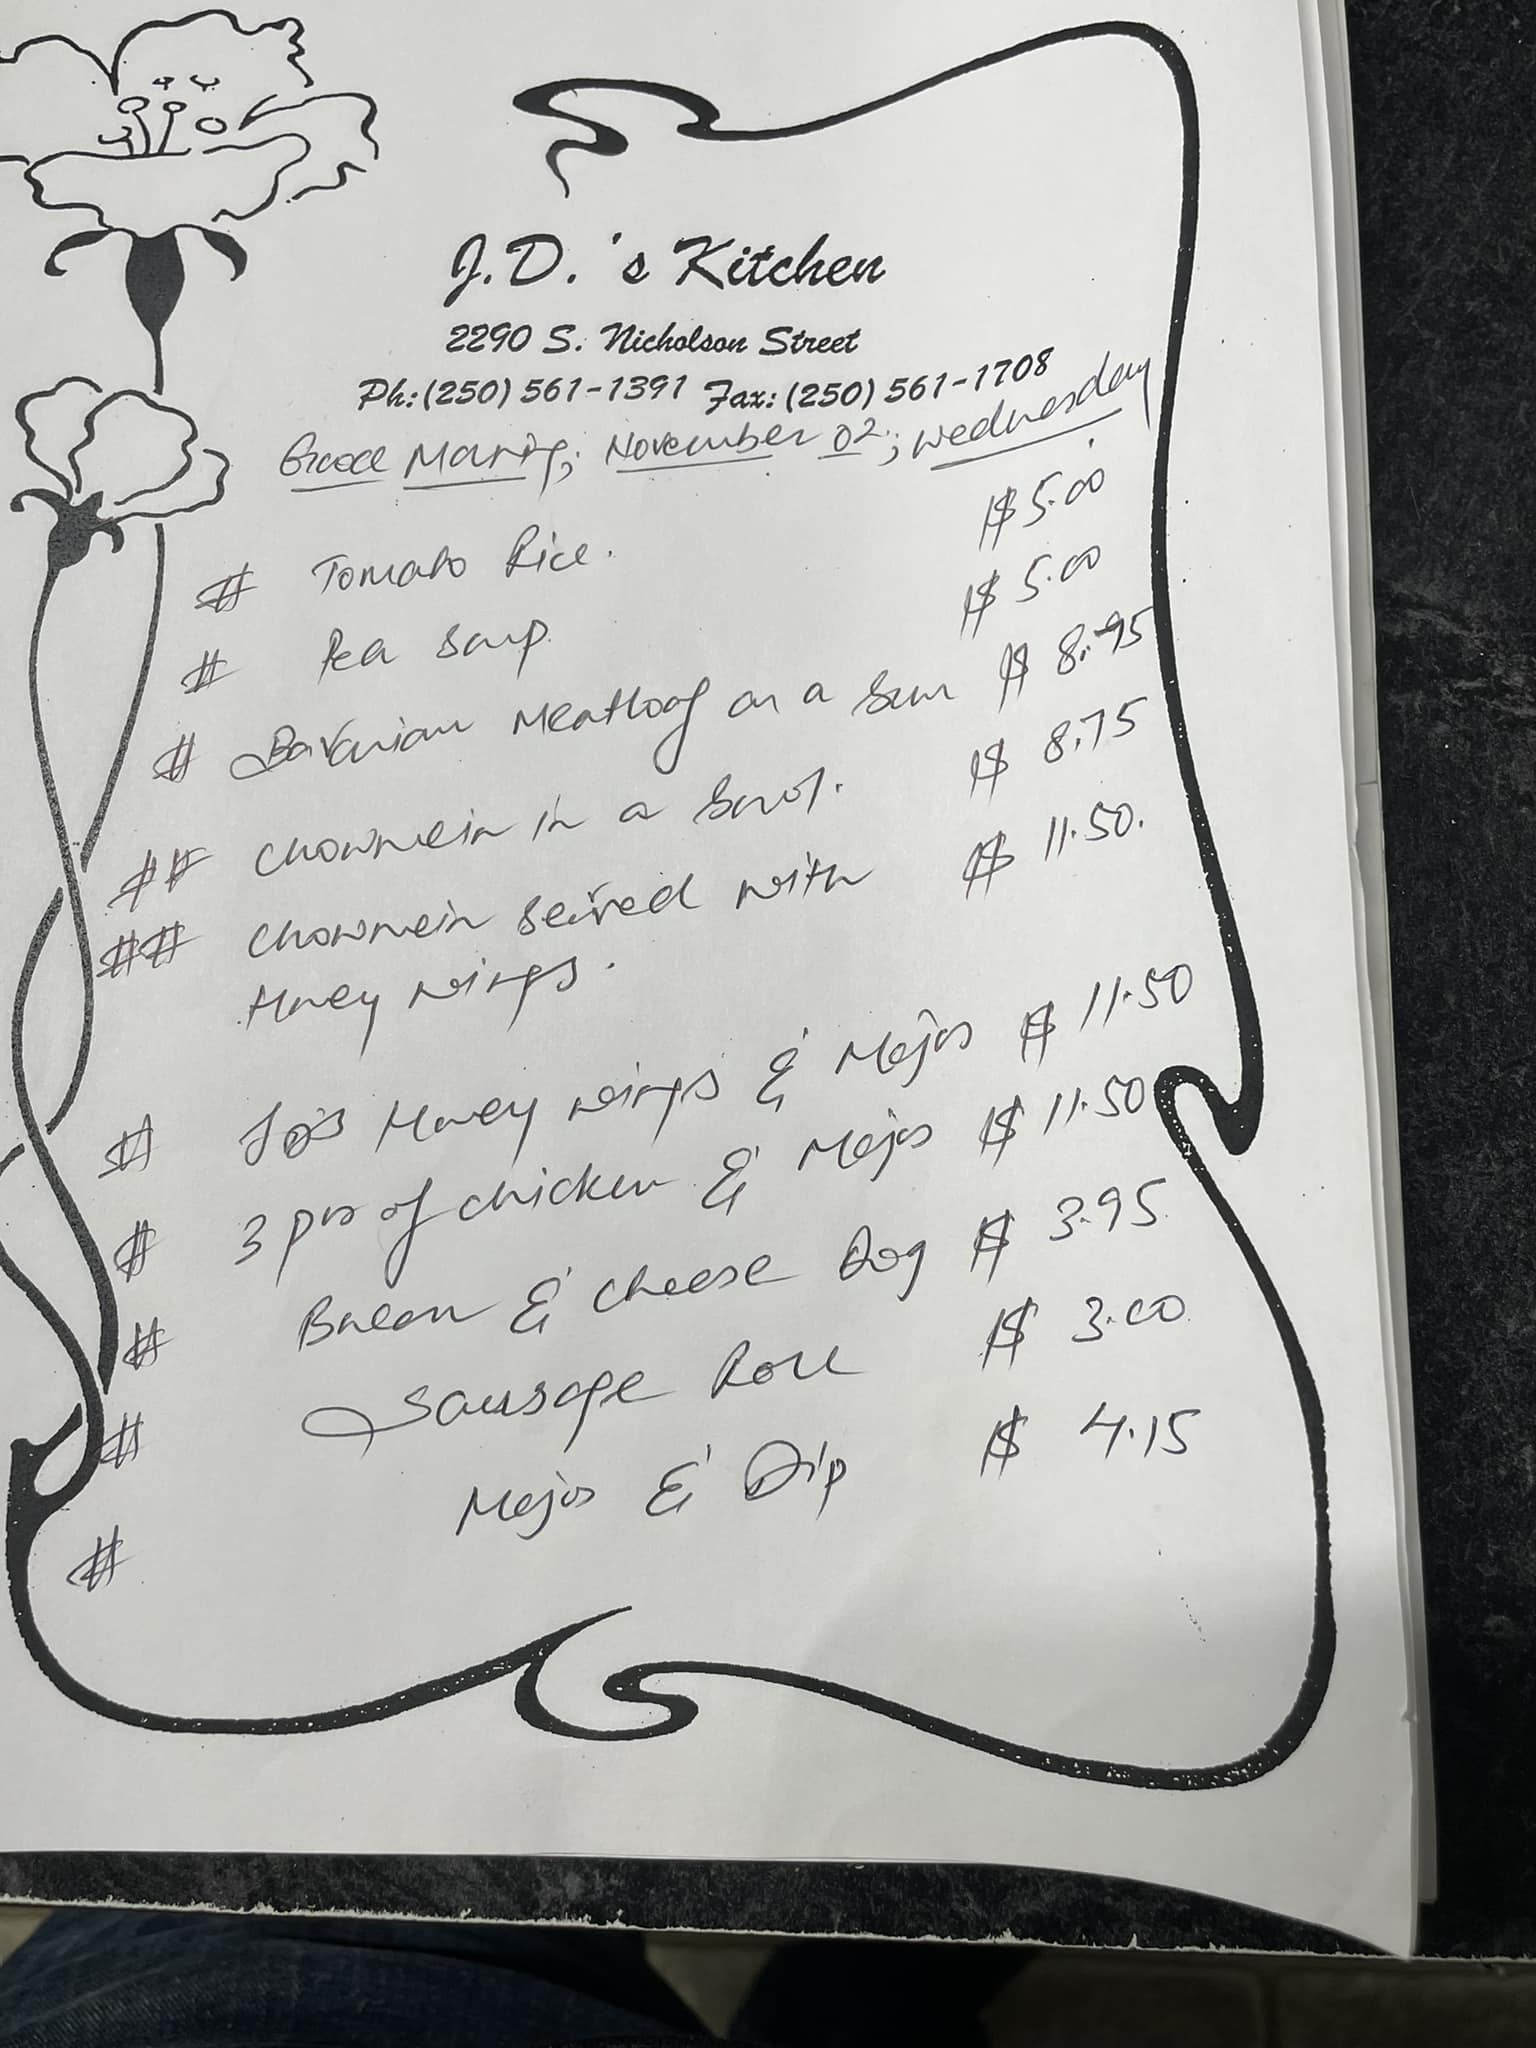 J.D.'s Kitchen
2290 S. Nicholson Street
Ph:(250) 561-1391 Fax:(250) 561-1708
Good Morning; November 02; Wednesday
# Tomato Rice. $ 5.00
# Pea Soup $ 5.00
# Bavarian Meatloaf on a Bun $ 8.95
## Chowmein in a Bowl. $ 8.75
## Chowmein Served with $ 11.50.
Honey wings.
# Honey wings & Mojos $ 11.50
# 3 pcs of chicken & Mojos $ 11.50
# Bacon & Cheese Dog $ 3.95
# Sausage Roll $ 3.00
# Mojos & Dip $ 4.15